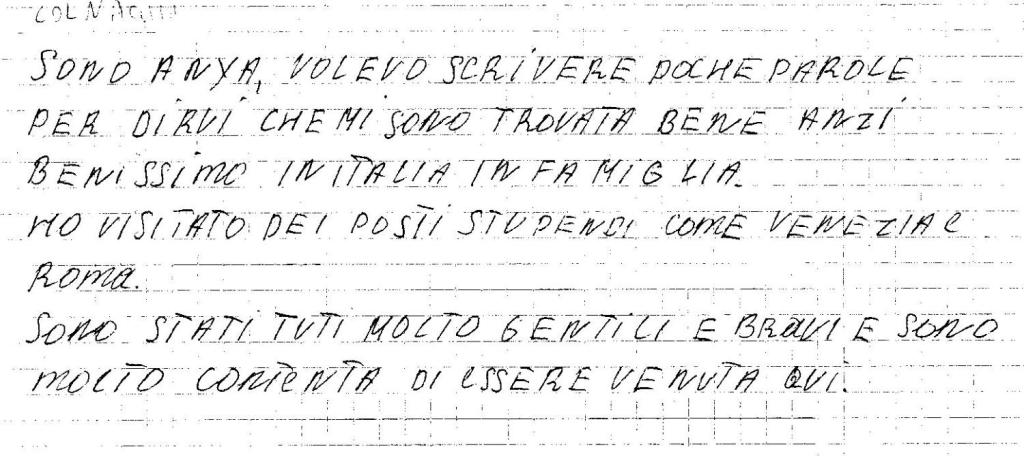 SONO ANYA, VOLEVO SCRIVERE POCHE PAROLE
PER DIRVI CHE MI SONO TROVATA BENE ANZI
BENISSIMO IN ITALIA IN FAMIGLIA.
HO VISITATO DEI POSTI STUPENDI COME VENEZIA E
ROMA.
SONO STATI TUTI MOLTO GENTILI E BRAVI E SONO
MOLTO CONTENTA DI ESSERE VENUTA QUI.